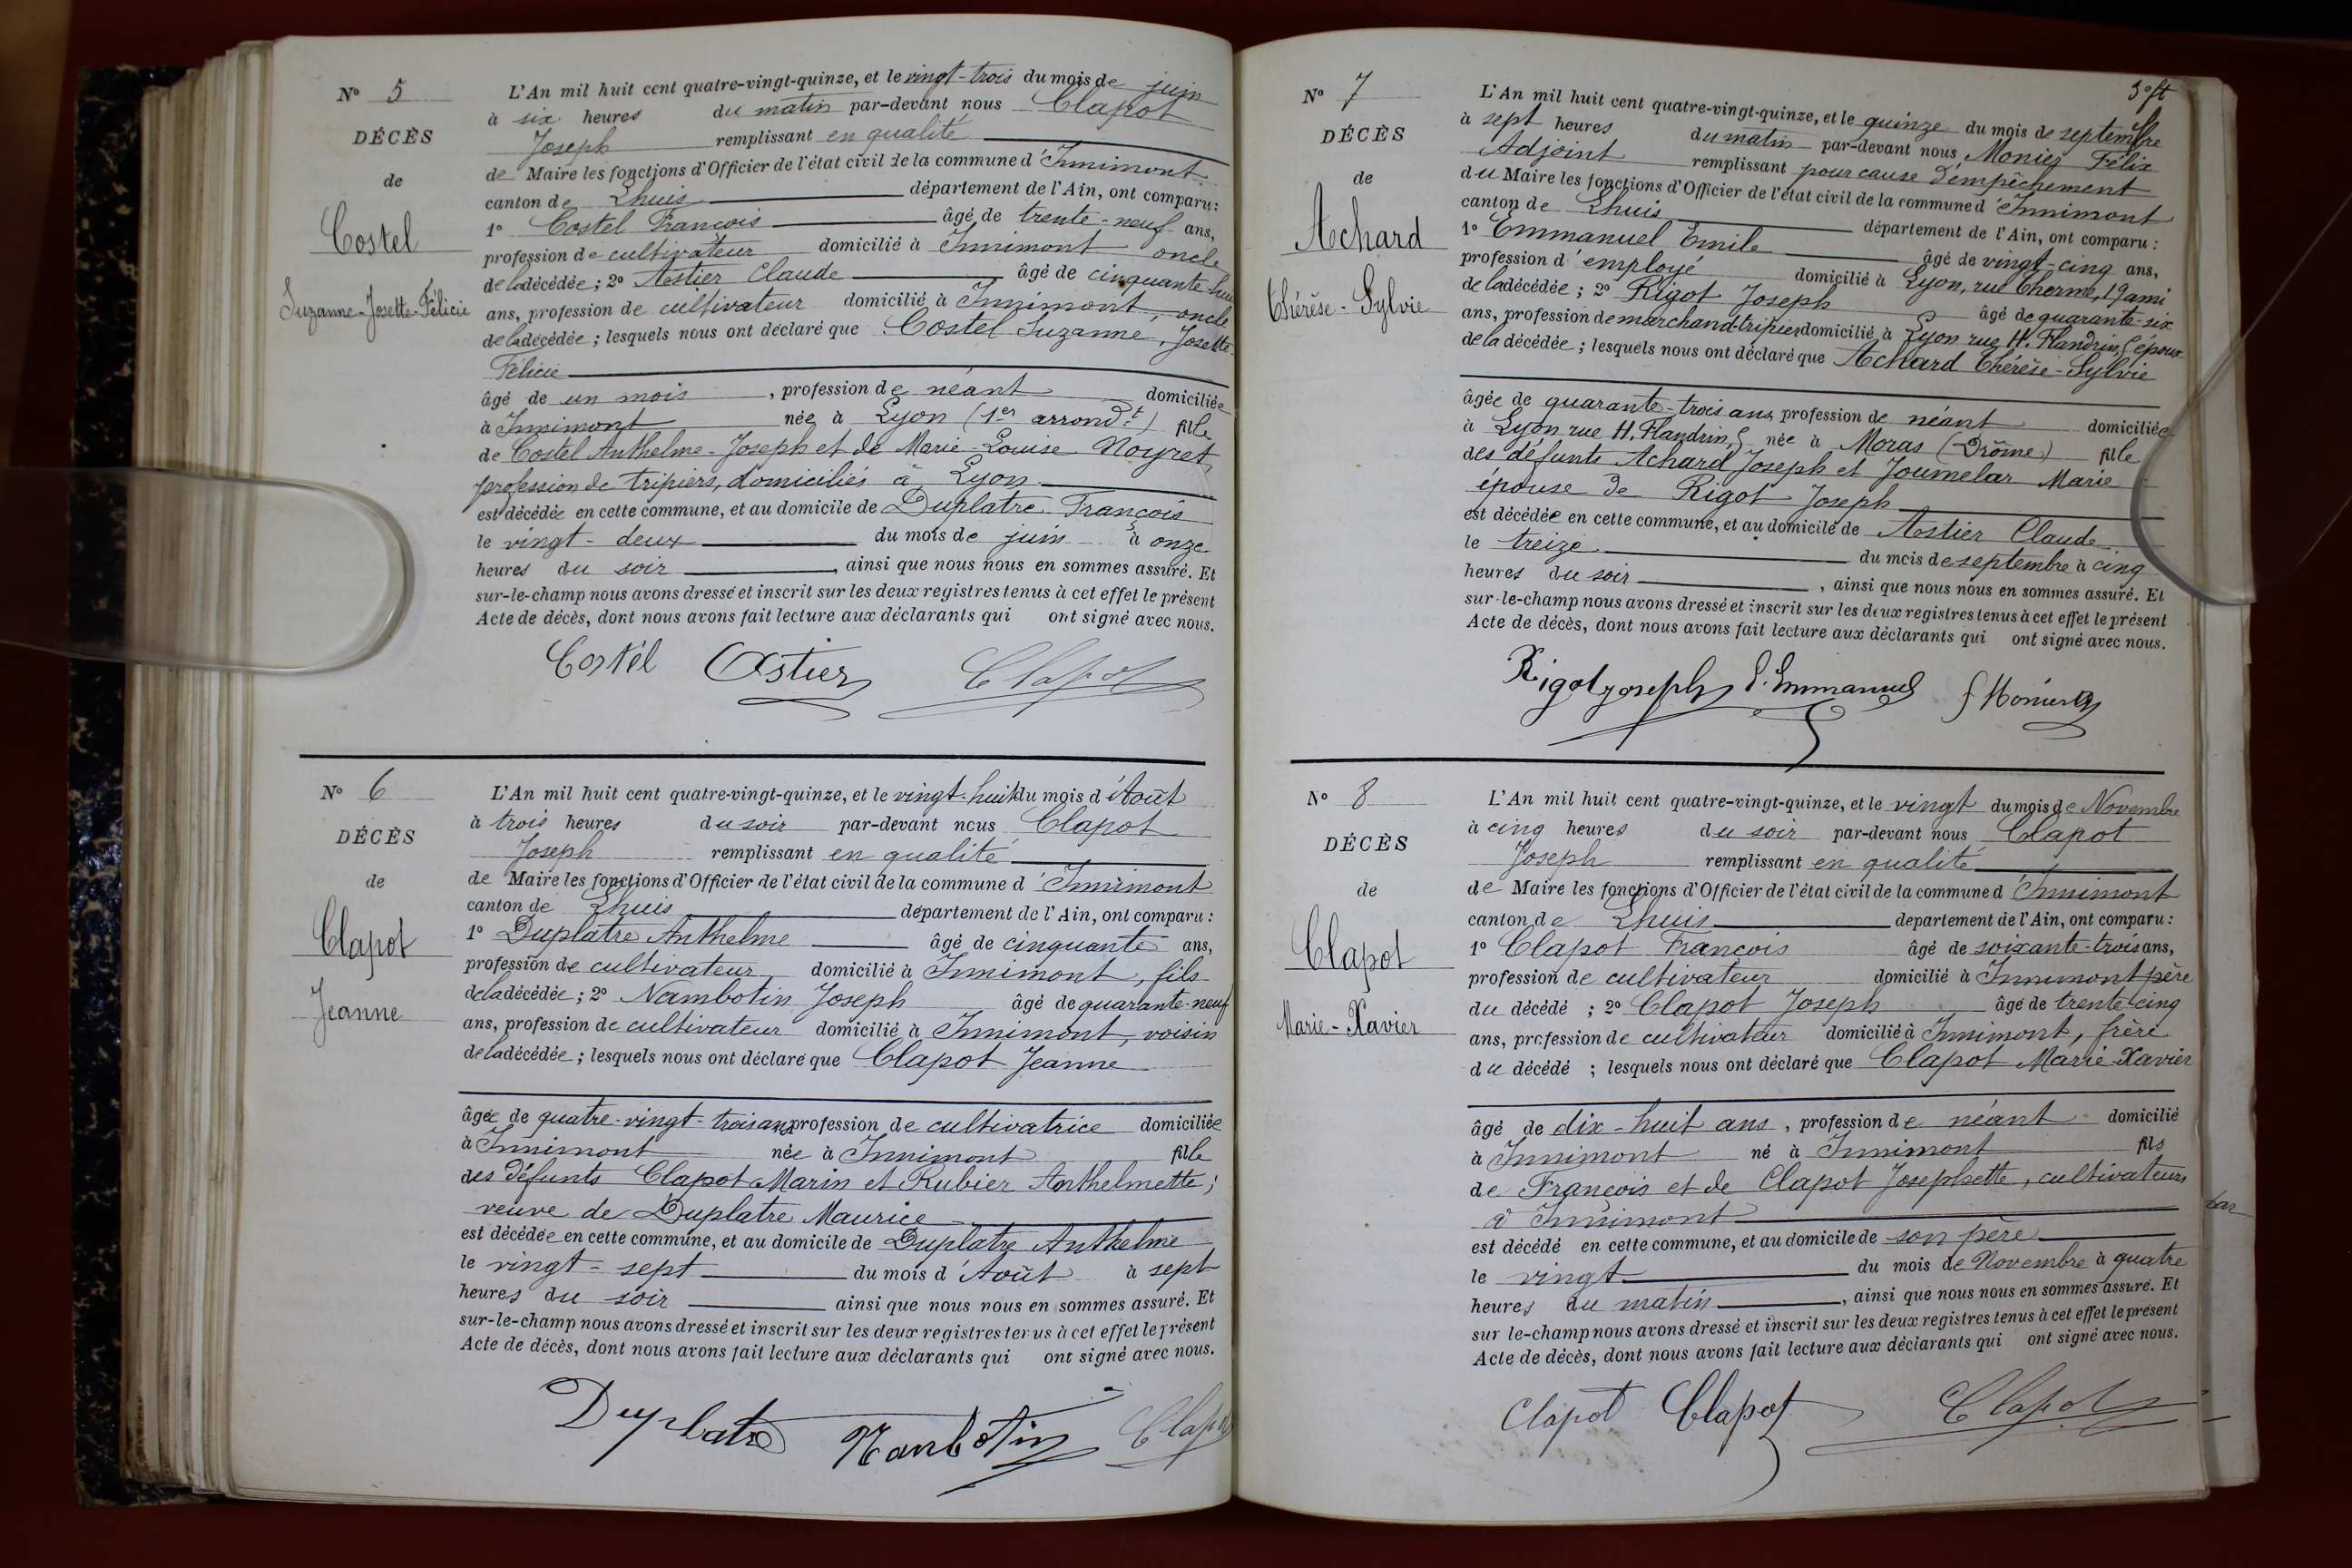 N° 5
DÉCÈS
de
Costel
Suzanne-Josette-Félicie
L'An mil huit cent quatre-vingt-quinze, et le vingt-trois du mois de juin
à six heures du matin par-devant nous Clapot
Joseph remplissant en qualité
de Maire les fonctions d'Officier de l'état civil de la commune d'Innimont
canton de Lhuis département de l'Ain, ont comparu :
1° Costel François âgé de trente-neuf ans,
profession de cultivateur domicilié à Innimont oncle
de la décédée ; 2° Astier Claude âgé de cinquante-huit
ans, profession de cultivateur domicilié à Innimont, oncle
de la décédée ; lesquels nous ont déclaré que Costel Suzanne, Josette-
Félicie
âgé de un mois, profession de néant domiciliée
à Innimont née à Lyon (1er arrondt) fille
de Costel Anthelme-Joseph et de Marie-Louise Noyret,
profession de tripiers, domiciliés à Lyon
est décédée en cette commune, et au domicile de Duplatre François
le vingt-deux du mois de juin à onze
heures du soir, ainsi que nous nous en sommes assuré. Et
sur-le-champ nous avons dressé et inscrit sur les deux registres tenus à cet effet le présent
Acte de décès, dont nous avons fait lecture aux déclarants qui ont signé avec nous.
Costel Astier Clapot
N° 6
DÉCÈS
de
Clapot
Jeanne
L'An mil huit cent quatre-vingt-quinze, et le vingt-huit du mois d'Août
à trois heures du soir par-devant nous Clapot
Joseph remplissant en qualité
de Maire les fonctions d'Officier de l'état civil de la commune d'Innimont
canton de Lhuis département de l'Ain, ont comparu :
1° Duplatre Anthelme âgé de cinquante ans,
profession de cultivateur, domicilié à Innimont, fils
de la décédée ; 2° Nambotin Joseph âgé de quarante-neuf
ans, profession de cultivateur domicilié à Innimont, voisin
de la décédée ; lesquels nous ont déclaré que Clapot Jeanne
âgée de quatre-vingt-trois ans, profession de cultivatrice domiciliée
à Innimont née à Innimont fille
des défunts Clapot Marin et Rubier Anthelmette ;
veuve de Duplatre Maurice
est décédée en cette commune, et au domicile de Duplatre Anthelme
le vingt-sept du mois d'Août à sept
heures du soir ainsi que nous nous en sommes assuré. Et
sur-le-champ nous avons dressé et inscrit sur les deux registres tenus à cet effet le présent
Acte de décès, dont nous avons fait lecture aux déclarants qui ont signé avec nous.
Duplatre Nambotin Clapot
N° 7
DÉCÈS
de
Achard
Thérèse-Sylvie
L'An mil huit cent quatre-vingt-quinze, et le quinze du mois de septembre
à sept heures du matin par-devant nous Monier Félix
Adjoint remplissant pour cause d'empêchement
du Maire les fonctions d'Officier de l'état civil de la commune d'Innimont
canton de Lhuis département de l'Ain, ont comparu :
1° Emmanuel Emile âgé de vingt-cinq ans,
profession d'employé domicilié à Lyon, rue Therme, 19 ami
de la décédée ; 2° Rigot Joseph âgé de quarante-six
ans, profession de marchand-tripier domicilié à Lyon rue H. Flandrin 5 époux
de la décédée ; lesquels nous ont déclaré que Achard Thérèse-Sylvie
âgée de quarante-trois ans, profession de néant domiciliée
à Lyon rue H. Flandrin 5 née à Moras (Drôme) fille
des défunts Achard Joseph et Joumelar Marie
épouse de Rigot Joseph
est décédée en cette commune, et au domicile de Astier Claude
le treize du mois de septembre à cinq
heures du soir, ainsi que nous nous en sommes assuré. Et
sur-le-champ nous avons dressé et inscrit sur les deux registres tenus à cet effet le présent
Acte de décès, dont nous avons fait lecture aux déclarants qui ont signé avec nous.
Rigot joseph E. Emmanuel f Monier
N° 8
DÉCÈS
de
Clapot
Marie-Xavier
L'An mil huit cent quatre-vingt-quinze, et le vingt du mois de Novembre
à cinq heures du soir par-devant nous Clapot
Joseph remplissant en qualité
de Maire les fonctions d'Officier de l'état civil de la commune d'Innimont
canton de Lhuis département de l'Ain, ont comparu :
1° Clapot François âgé de soixante-trois ans,
profession de cultivateur domicilié à Innimont père
du décédé ; 2° Clapot Joseph âgé de trente-cinq
ans, profession de cultivateur domicilié à Innimont, frère
du décédé ; lesquels nous ont déclaré que Clapot Marie-Xavier
âgé de dix-huit ans, profession de néant domicilié
à Innimont né à Innimont fils
de François et de Clapot Josephette, cultivateurs
à Innimont
est décédé en cette commune, et au domicile de son père
le vingt du mois de Novembre à quatre
heures du matin, ainsi que nous nous en sommes assuré. Et
sur-le-champ nous avons dressé et inscrit sur les deux registres tenus à cet effet le présent
Acte de décès, dont nous avons fait lecture aux déclarants qui ont signé avec nous.
Clapot Clapot Clapot